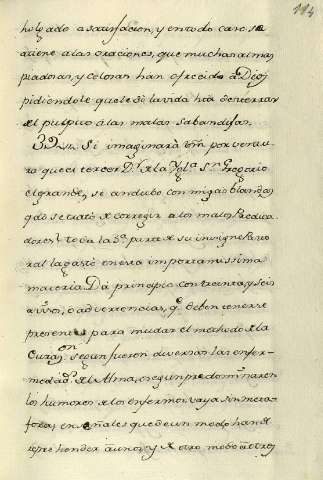 114
holgado a satisfacion, y en todo caso se
atiene a las oraciones, que muchas almas
piadosas, y celosas han ofrecido a Dios
pidiendole que le de la vida hta desterrar
del pulpito a las malas sabandijas.
32. Si imaginarà Vm. por ventura
que el tercer Dr. de la Ygla. Sn. Gregorio
el grande, se andubo con migas blandas
qdo se trató de corregir a los malos Predicadores?
toda la 3a. parte de su insigne Pastoral
la gastó en esta importantissima
materia. Dá principio con treinta, y seis
avisos, o advertencias, q. deben tenerse
presentes para mudar el methodo de la
Curazon segun fueren diversas las enfermedads.
del Alma, segun predominaren
los humores de los enfermos, vaya sin metaforas,
enseñales que de un modo han de
reprehender à unos, y de otro modo à otros